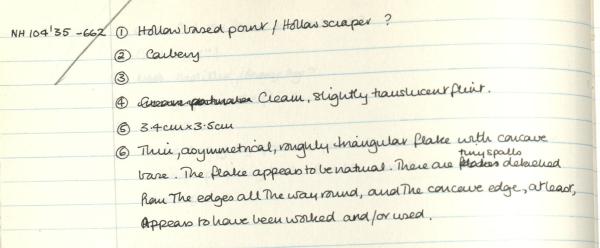 NH 104'35 - 662 ① Hollow based point / Hollow scraper ?
② Carbery
③
④ Cream, slightly translucent flint.
⑤ 3.4cm x 3.5cm
⑥ Thin, asymmetrical, roughly triangular flake with concave
base. The flake appears to be natural. There are tiny spalls detached
from the edges all the way round, and the concave edge, at least,
appears to have been worked and/or used.